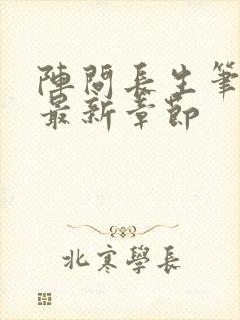 陣問長生筆
最新章節
北寒學長